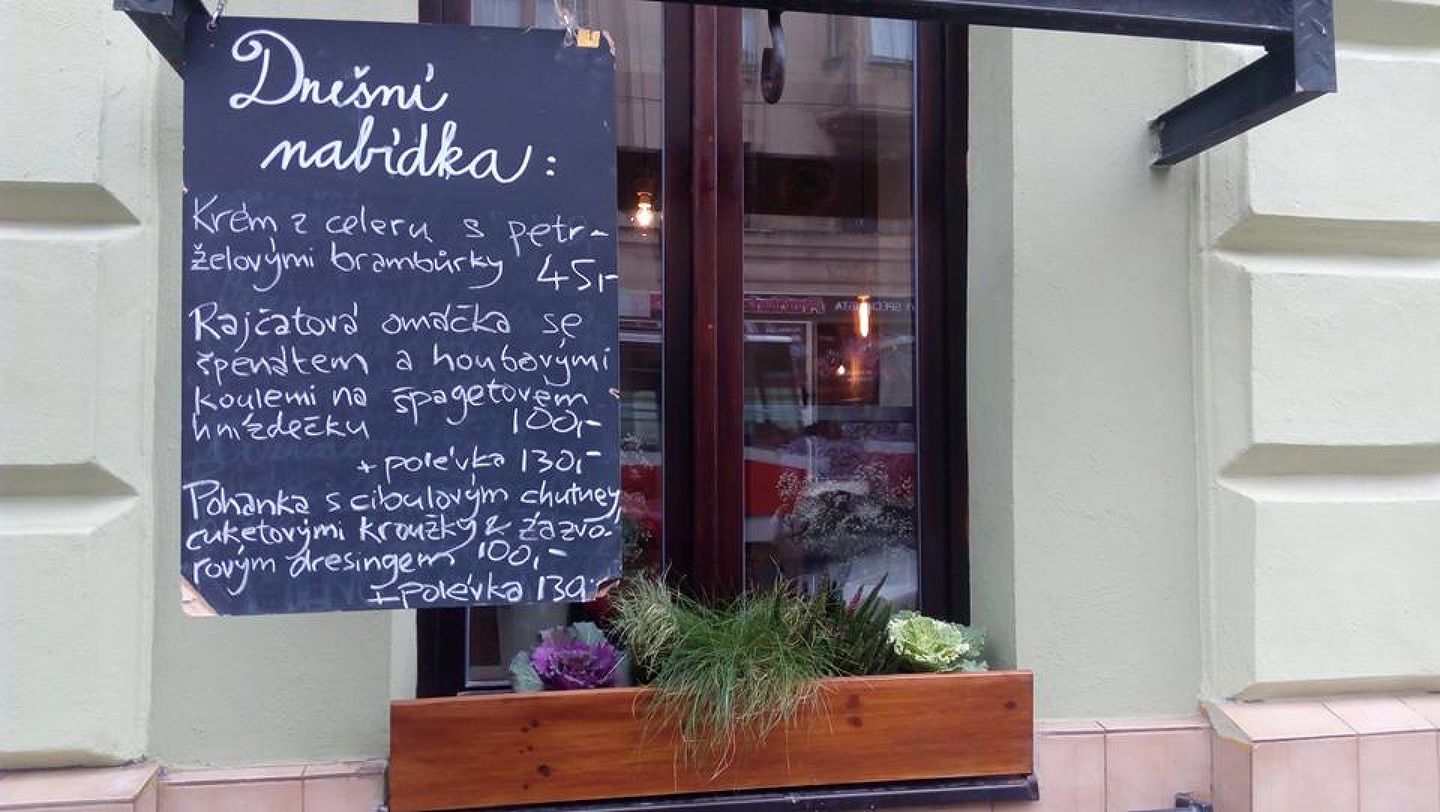 Dnešní
nabídka:
Krém z celeru s petr-
želovými brambůrky 45,-
Rajčatová omáčka se
špenátem a houbovými
koulemi na špagetovém
hnízdečku 100,-
+ polévka 130,-
Pohanka s cibulovým chutney,
cuketovými kroužky & zázvo-
rovým dresingem 100,-
+polévka 130,-